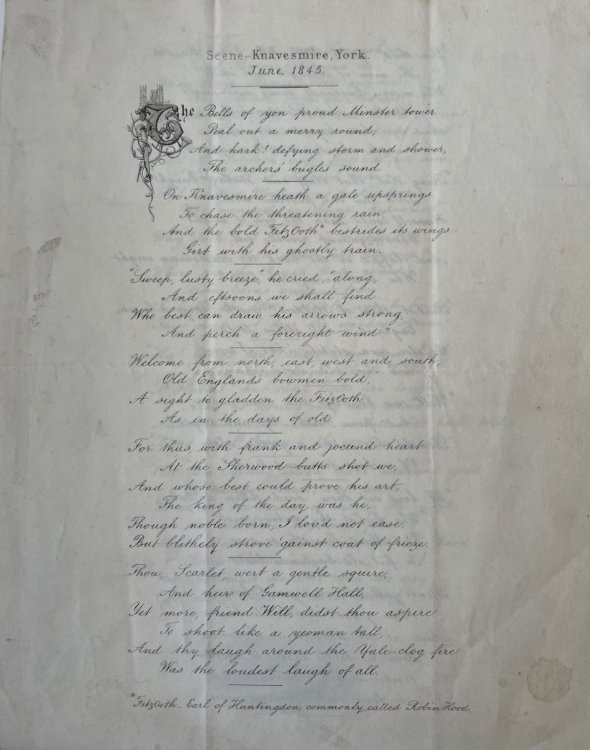 Scene–Knavesmire, York.
June, 1845.
The Bells of yon proud Minster tower
Peal out a merry round;
And hark! defying storm and shower,
The archers' bugles sound.
On Knavesmire heath a gale upsprings
To chase the threatening rain
And the bold FitzOoth* bestrides its wings
Girt with his ghostly train.
"Sweep, lusty breeze," he cried, "along,
And eftsoons we shall find
Who best can draw his arrows strong,
And perch a foreright wind."
Welcome from north, east, west and south,
Old England's bowmen bold,
A sight to gladden the FitzOoth
As in the days of old.
For thus with frank and jocund heart
At the Sherwood butts shot we,
And whose best could prove his art,
The king of the day was he,
Though noble born, I lov'd not ease,
But blithely strove 'gainst coat of frieze.
Thou, Scarlet, wert a gentle squire,
And heir of Gamwell Hall,
Yet more, friend Will, didst thou aspire
To shoot like a yeoman tall,
And thy laugh around the Yule-clog fire
Was the loudest laugh of all.
*FitzOoth – Earl of Huntingdon, commonly called Robin Hood.